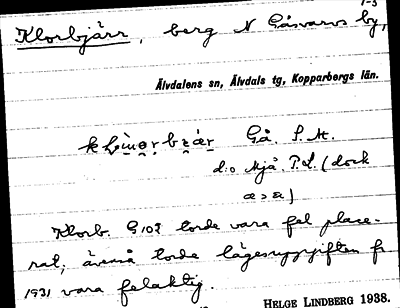 1-3
Klorbjärr, berg N Gåsvarvs by,
Älvdalens sn, Älvdals tg, Kopparbergs län.
Gå. S. M.
d:o Mjå. P.L. (dock
æ > a)
Klorb. G 102 torde vara fel place-
rat; även så torde lägesuppgiften fr
1931 vara felaktig.
HELGE LINDBERG 1938.